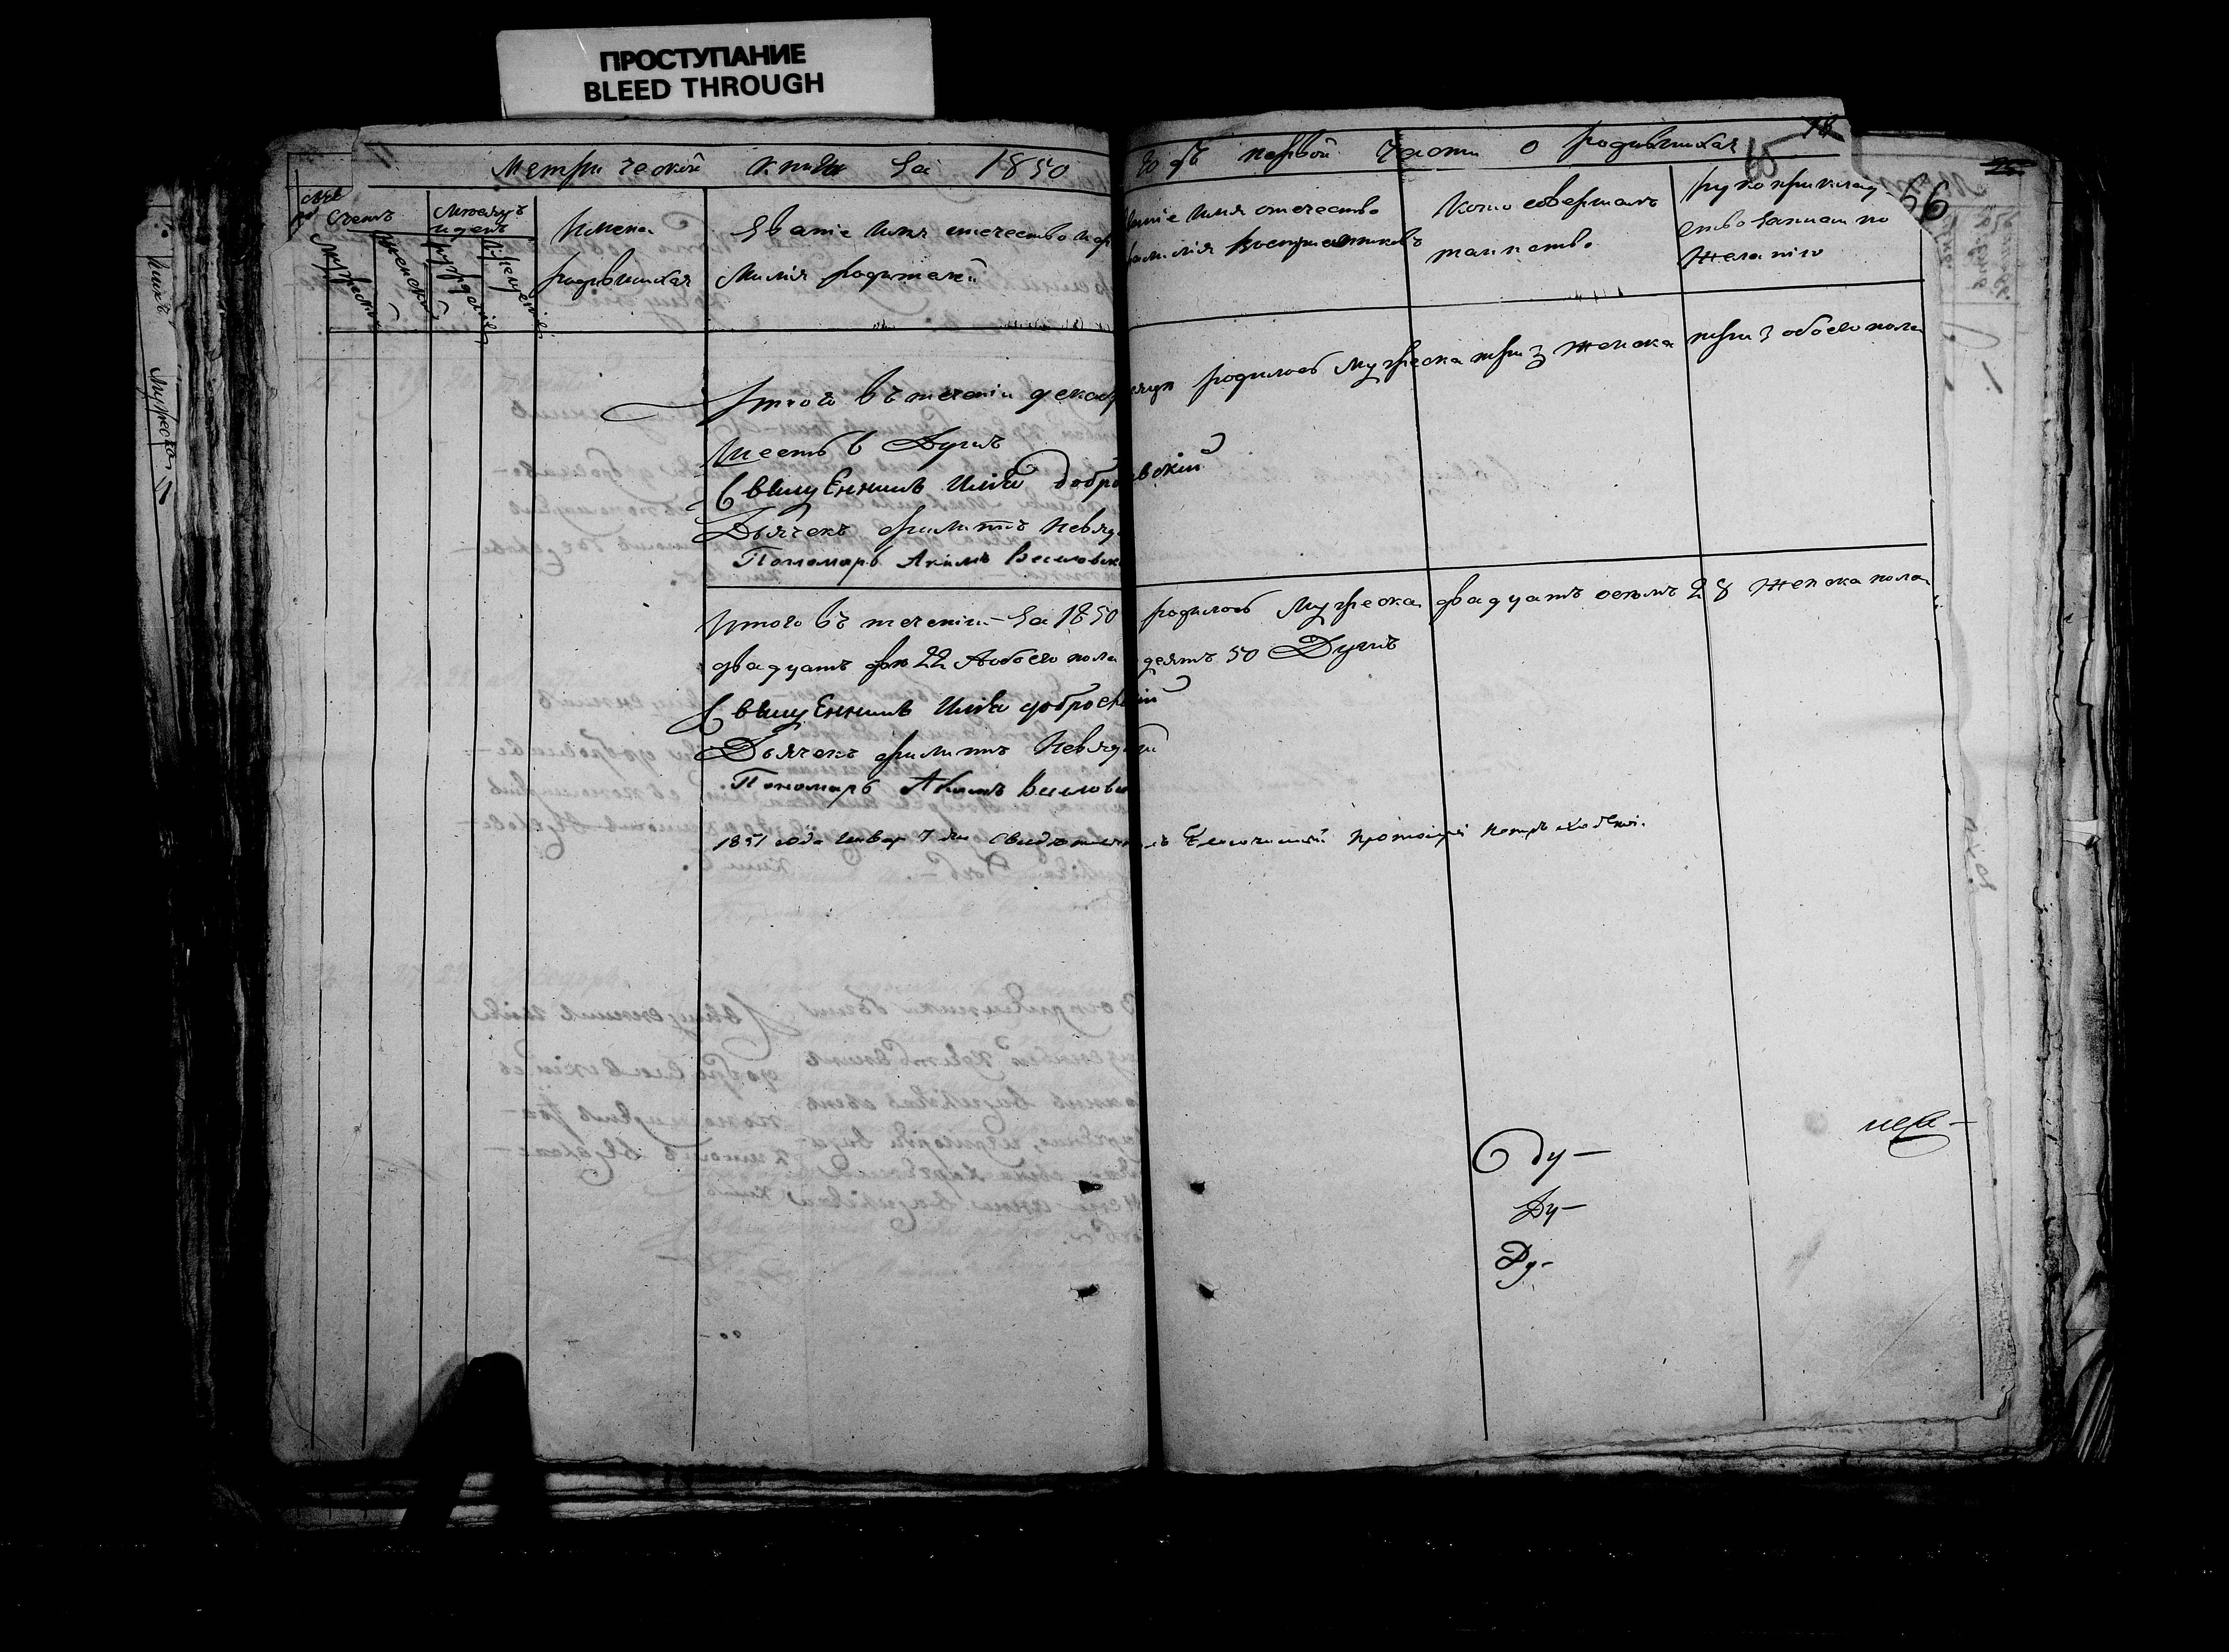 ПРОСТУПАНИЕ
BLEED THROUGH
Метрической книги за 1850 годъ первой части о родившихся
18
65
56
Счетъ
мѣсяцъ
и день
Мужеской
Женской
рожденія
крещенія
Имена
родившихся
Званіе имя отечество и фа
милія родителей
званіе имя отечество
фамилія воспріемниковъ
Кто совершалъ
таинство
рукоприклад
ство записи по
желанію
Итого въ теченіи декабр родилось Мужеска три 3 Женска три 3 обоего пола
Шесть 6 Душъ
Священникъ Илія
Дьячекъ Филиппъ
Пономарь Акимъ
Итого въ теченіи за 1850 родилось Мужеска двадцать осьмъ 28 Женска пола
двадцать два 22 А обоего пола десятъ 50 Душъ
Священникъ Илія
Дьячекъ Филиппъ
Пономарь Акимъ
1851 года Январ 7 дня Свидѣтельств Благочинный Протоіерей Петръ
Ду-
Ду-